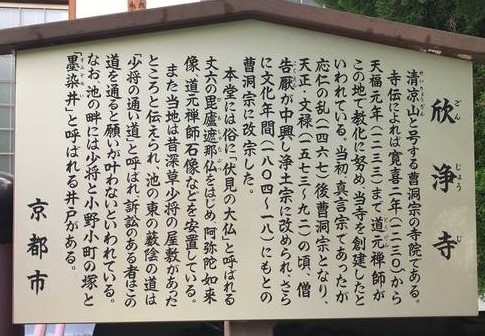 欣浄寺
ごんじょうじ
清凉山と号する曹洞宗の寺院である。
せいりょうざん
寺伝によれば寛喜二年(一二三〇)から
天福元年(一二三三)まで道元禅師が
どうげん
この地で教化に努め、当寺を創建したと
いわれている。当初、真言宗であったが
応仁の乱(一四六七)後曹洞宗となり、
天正・文禄(一五七三〜九二)の頃、僧
告厭が中興し浄土宗に改められ、さら
に文化年間(一八〇四〜一八)にもとの
曹洞宗に改宗した。
本堂には俗に「伏見の大仏」と呼ばれる
丈六の毘盧遮那仏をはじめ、阿弥陀如来
像、道元禅師石像などを安置している。
また当地は昔深草少将の屋敷があった
ところと伝えられ、池の東の藪陰の道は
「少将の通い道」と呼ばれ、訴訟のある者はこの
道を通ると願いが叶わないといわれている。
なお、池の畔には少将と小野小町の塚と
「墨染井」と呼ばれる井戸がある。
京都市